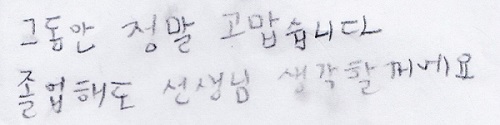 그동안 정말 고맙습니다
졸업해도 선생님 생각할께예요